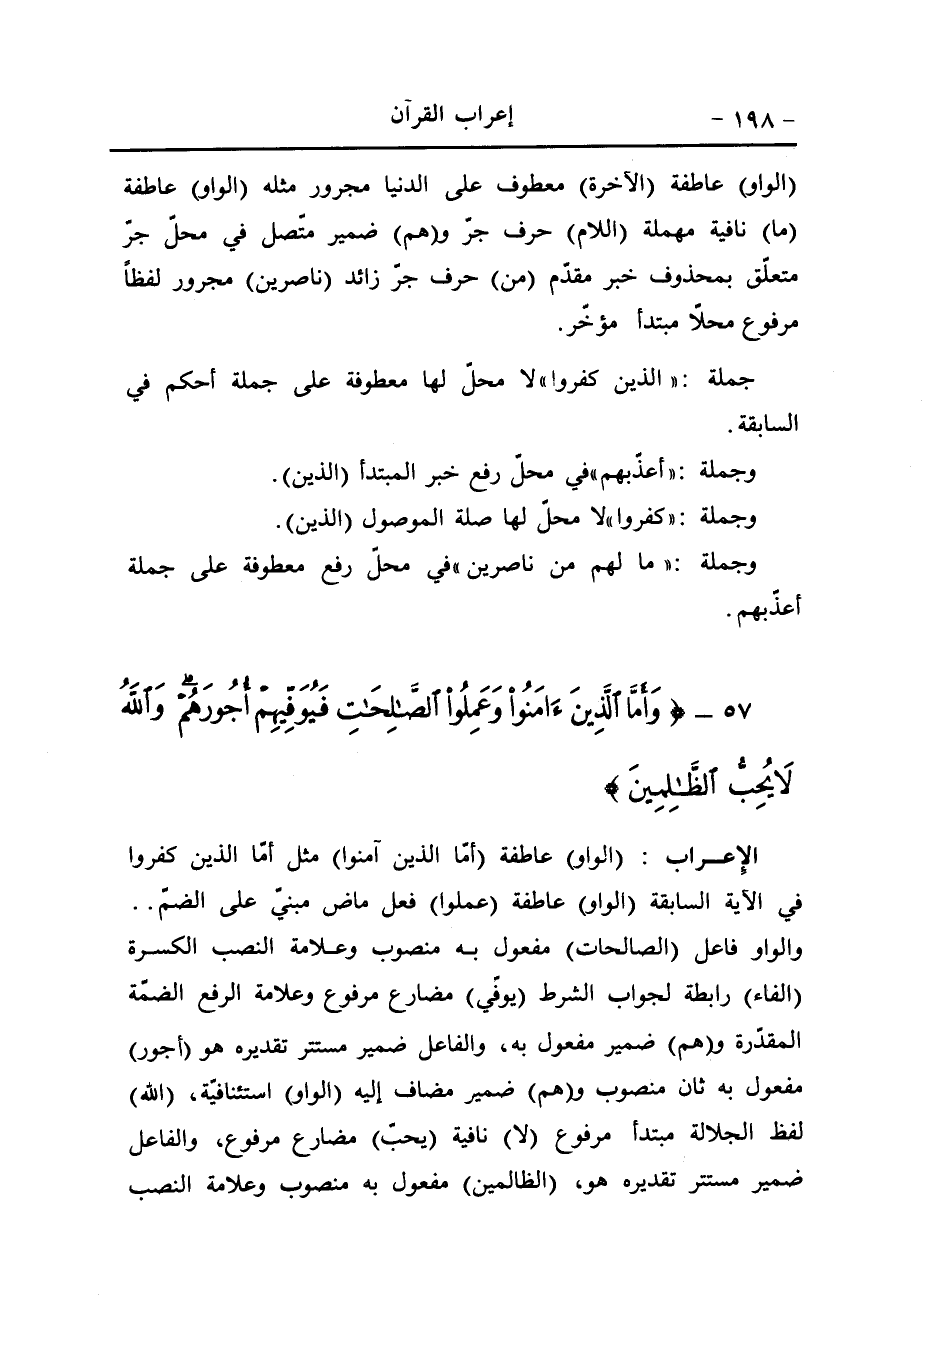 - ١٩٨ - إعراب القرآن
(الواو) عاطفة (الآخرة) معطوف على الدنيا مجرور مثله (الواو) عاطفة
(ما) نافية مهملة (اللام) حرف جرّ و(هم) ضمير متّصل في محلّ جرّ
متعلّق بمحذوف خبر مقدّم (من) حرف جرّ زائد (ناصرين) مجرور لفظاً
مرفوع محلّا مبتدأ مؤخّر.
جملة :« الذين كفروا»لا محلّ لها معطوفة على جملة أحكم في
السابقة.
وجملة :«أعذّبهم»في محلّ رفع خبر المبتدأ (الذين).
وجملة :«كفروا»لا محلّ لها صلة الموصول (الذين).
وجملة :« ما لهم من ناصرين »في محلّ رفع معطوفة على جملة
أعذّبهم.
٥٧ - ﴿ وَأَمَّا ٱلَّذِينَ ءَامَنُواْ وَعَمِلُواْ ٱلصَّـٰلِحَـٰتِ فَيُوَفِّيهِمْ أُجُورَهُمْۗ وَٱللَّهُ
لَا يُحِبُّ ٱلظَّـٰلِمِينَ ﴾
الإعـــراب : (الواو) عاطفة (أمّا الذين آمنوا) مثل أمّا الذين كفروا
في الآية السابقة (الواو) عاطفة (عملوا) فعل ماض مبنيّ على الضمّ..
والواو فاعل (الصالحات) مفعول بـه منصوب وعـلامة النصب الكسـرة
(الفاء) رابطة لجواب الشرط (يوفّي) مضارع مرفوع وعلامة الرفع الضمّة
المقدّرة و(هم) ضمير مفعول به، والفاعل ضمير مستتر تقديره هو (أجور)
مفعول به ثان منصوب و(هم) ضمير مضاف إليه (الواو) استئنافيّة، (الله)
لفظ الجلالة مبتدأ مرفوع (لا) نافية (يحبّ) مضارع مرفوع، والفاعل
ضمير مستتر تقديره هو، (الظالمين) مفعول به منصوب وعلامة النصب